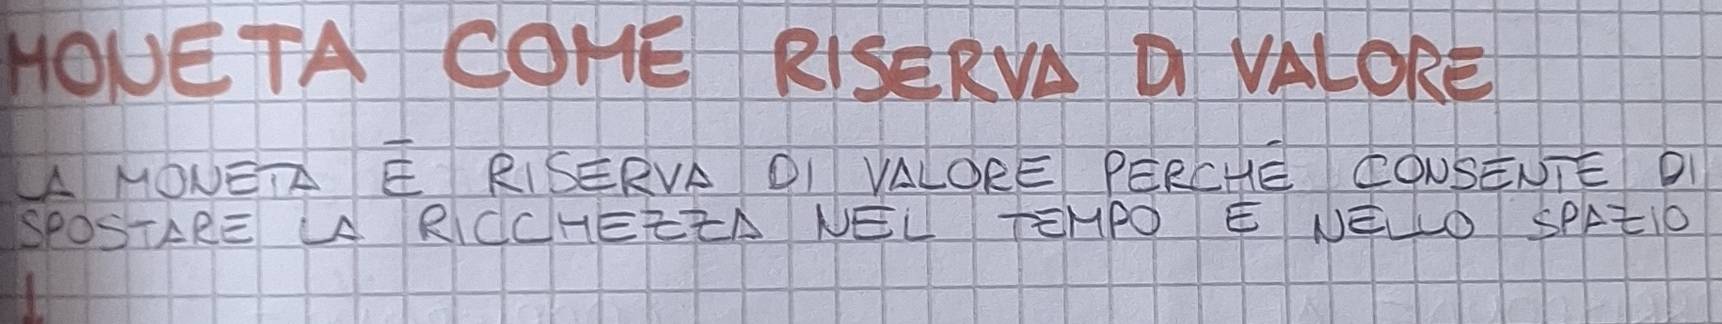 MONETA COME RISERVA DI VALORE
LA MONETA È RISERVA DI VALORE PERCHÉ CONSENTE DI
SPOSTARE LA RICCHEZZA NEL TEMPO E NELLO SPAZIO